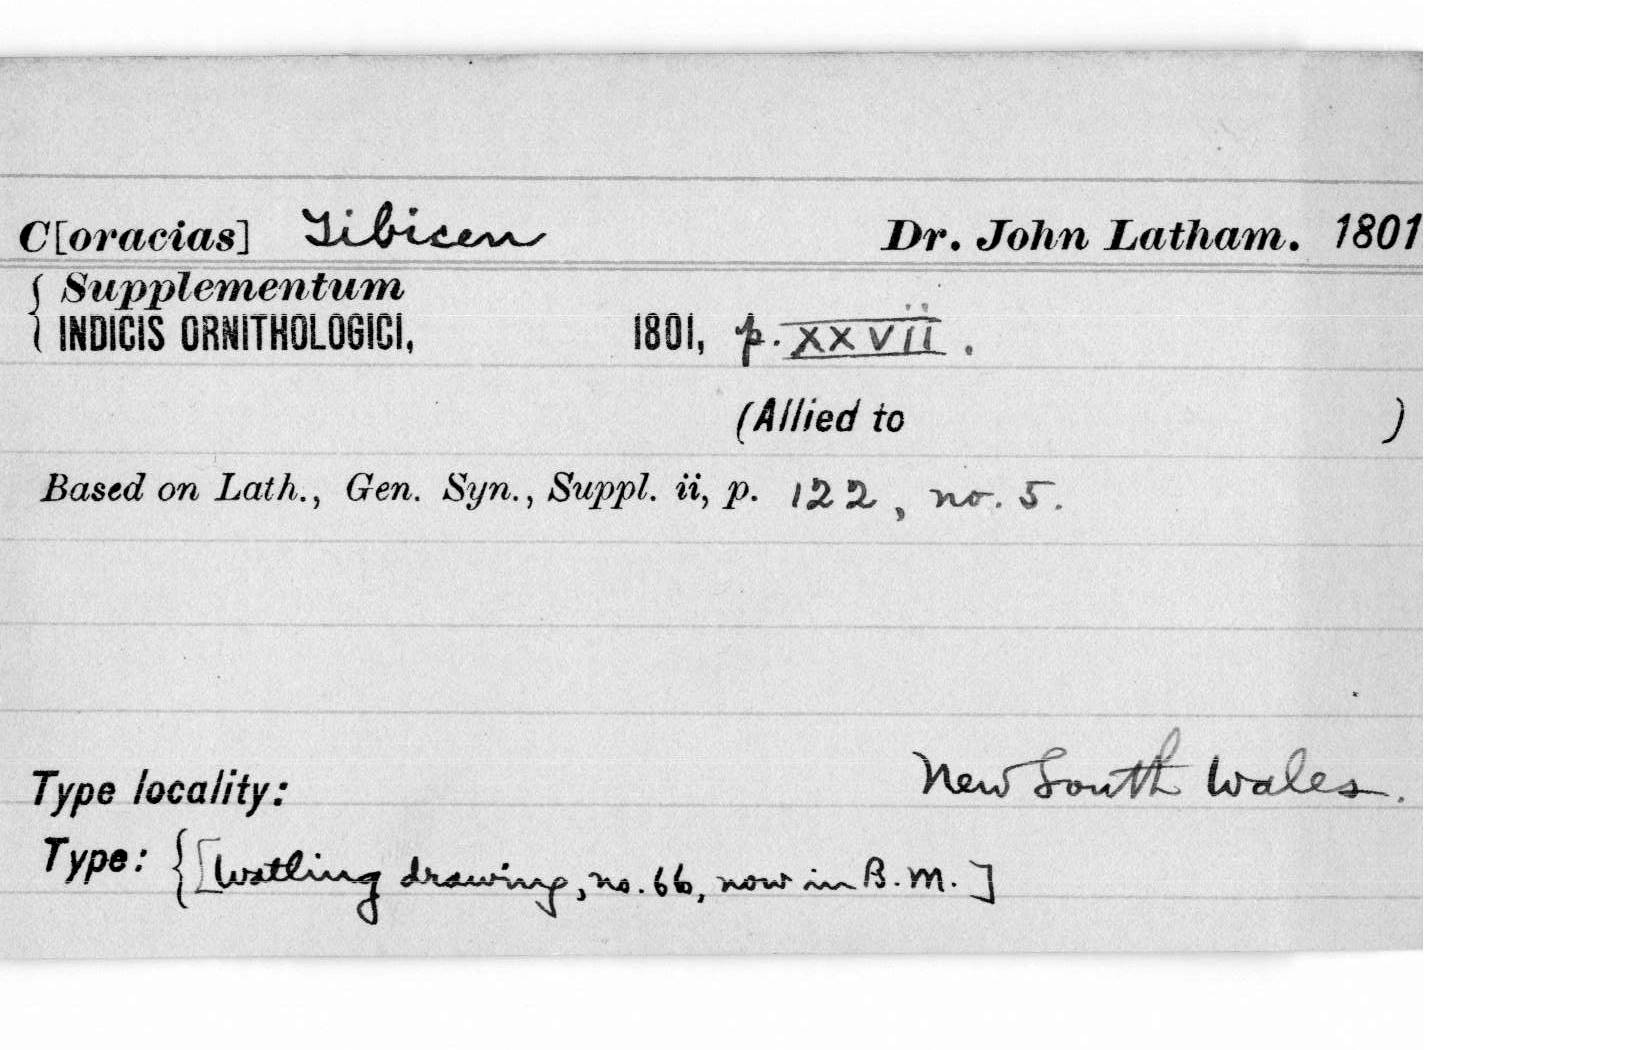 C[oracias] Tibicen Dr. John Latham. 1801
Supplementum
INDICIS ORNITHOLOGICI, 1801, p. xxvii.
(Allied to )
Based on Lath., Gen. Syn., Suppl. ii, p. 122, no. 5.
Type locality: New South Wales.
Type: {[Watling drawing, no. 66, now in B.M.]